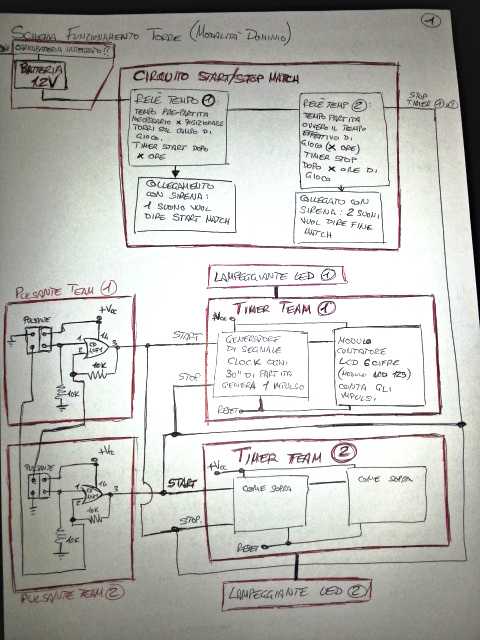 ①
SCHEMA FUNZIONAMENTO TORRE (MODALITÀ DOMINIO)
CARICABATTERIA INTEGRATO ??
BATTERIA
12V
CIRCUITO START/STOP MATCH
RELÈ TEMPO ①
TEMPO PRE-PARTITA
NECESSARIO X POSIZIONARE
TORRI SUL CAMPO DI
GIOCO.
TIMER START DOPO
X ORE
RELÈ TEMP ②:
TEMPO PARTITA
OVVERO IL TEMPO
EFFETTIVO DI
GIOCO (X ORE)
TIMER STOP
DOPO X ORE DI
GIOCO
STOP
TIMER ① x ②
COLLEGAMENTO
CON SIRENA:
1 SUONO VUOL
DIRE START MATCH
COLLEGATO CON
SIRENA: 2 SUONI
VUOL DIRE FINE
MATCH
LAMPEGGIANTE LED ①
PULSANTE TEAM ①
+Vcc
PULSANTE
1
14
3
2
10K
10K
START
STOP
TIMER TEAM ①
+Vcc
GENERATORE
DI SEGNALE
CLOCK OGNI
30" DI PARTITA
GENERA 1 IMPULSO
RESET
MODULO
CONTATORE
LCD 6 CIFRE
(MODULO LCD 129)
CONTA GLI
IMPULSI.
+Vcc
PULSANTE
1
14
3
2
10K
10K
PULSANTE TEAM ②
START
STOP.
TIMER TEAM ②
+Vcc
COME SOPRA
COME SOPRA
RESET
LAMPEGGIANTE LED ②